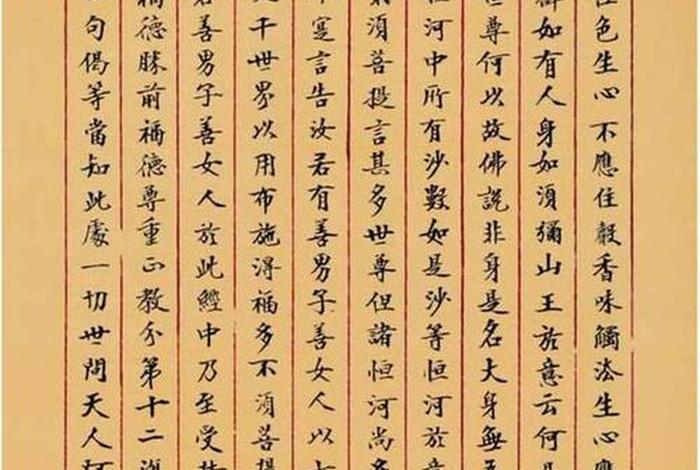 住色生心不應住聲香味觸法生心應
譬如有人身如須彌山王於意云何是
世尊何以故佛說非身是名大身無
恒河中所有沙數如是沙等恒河於意
須菩提言甚多世尊但諸恒河尚多
實言告汝若有善男子善女人以七
千世界以用布施得福多不須菩提
若善男子善女人於此經中乃至受持
福德勝前福德尊重正教分第十二復
句偈等當知此處一切世間天人阿